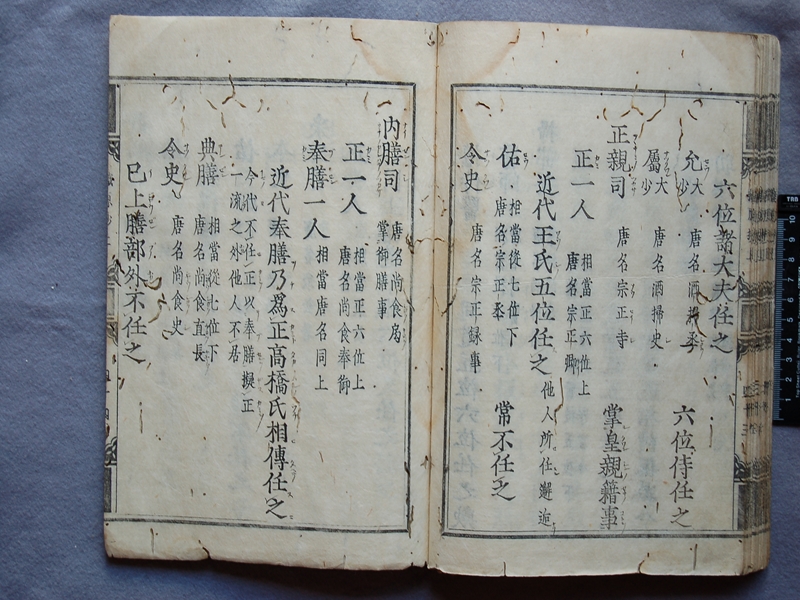 六位諸大夫任之
允 大 少 唐名酒掃丞 六位侍任之
屬 大 少 唐名酒掃史
正親司 唐名宗正寺 掌皇親籍事
正一人 相當正六位上
唐名宗正卿
近代王氏五位任之 他人所任邂逅
佑 相當從七位下
唐名宗正丞 常不任之
令史 唐名宗正録事
内膳司 唐名尚食局
掌御膳事
正一人 相當正六位上
唐名尚食奉御
奉膳一人 相當唐名同上
近代奉膳乃爲正高橋氏相傳任之
今代不任正以奉膳擬正
一流之外他人不居
典膳 相當從七位下
唐名尚食直長
令史 唐名尚食史
已上膳部外不任之